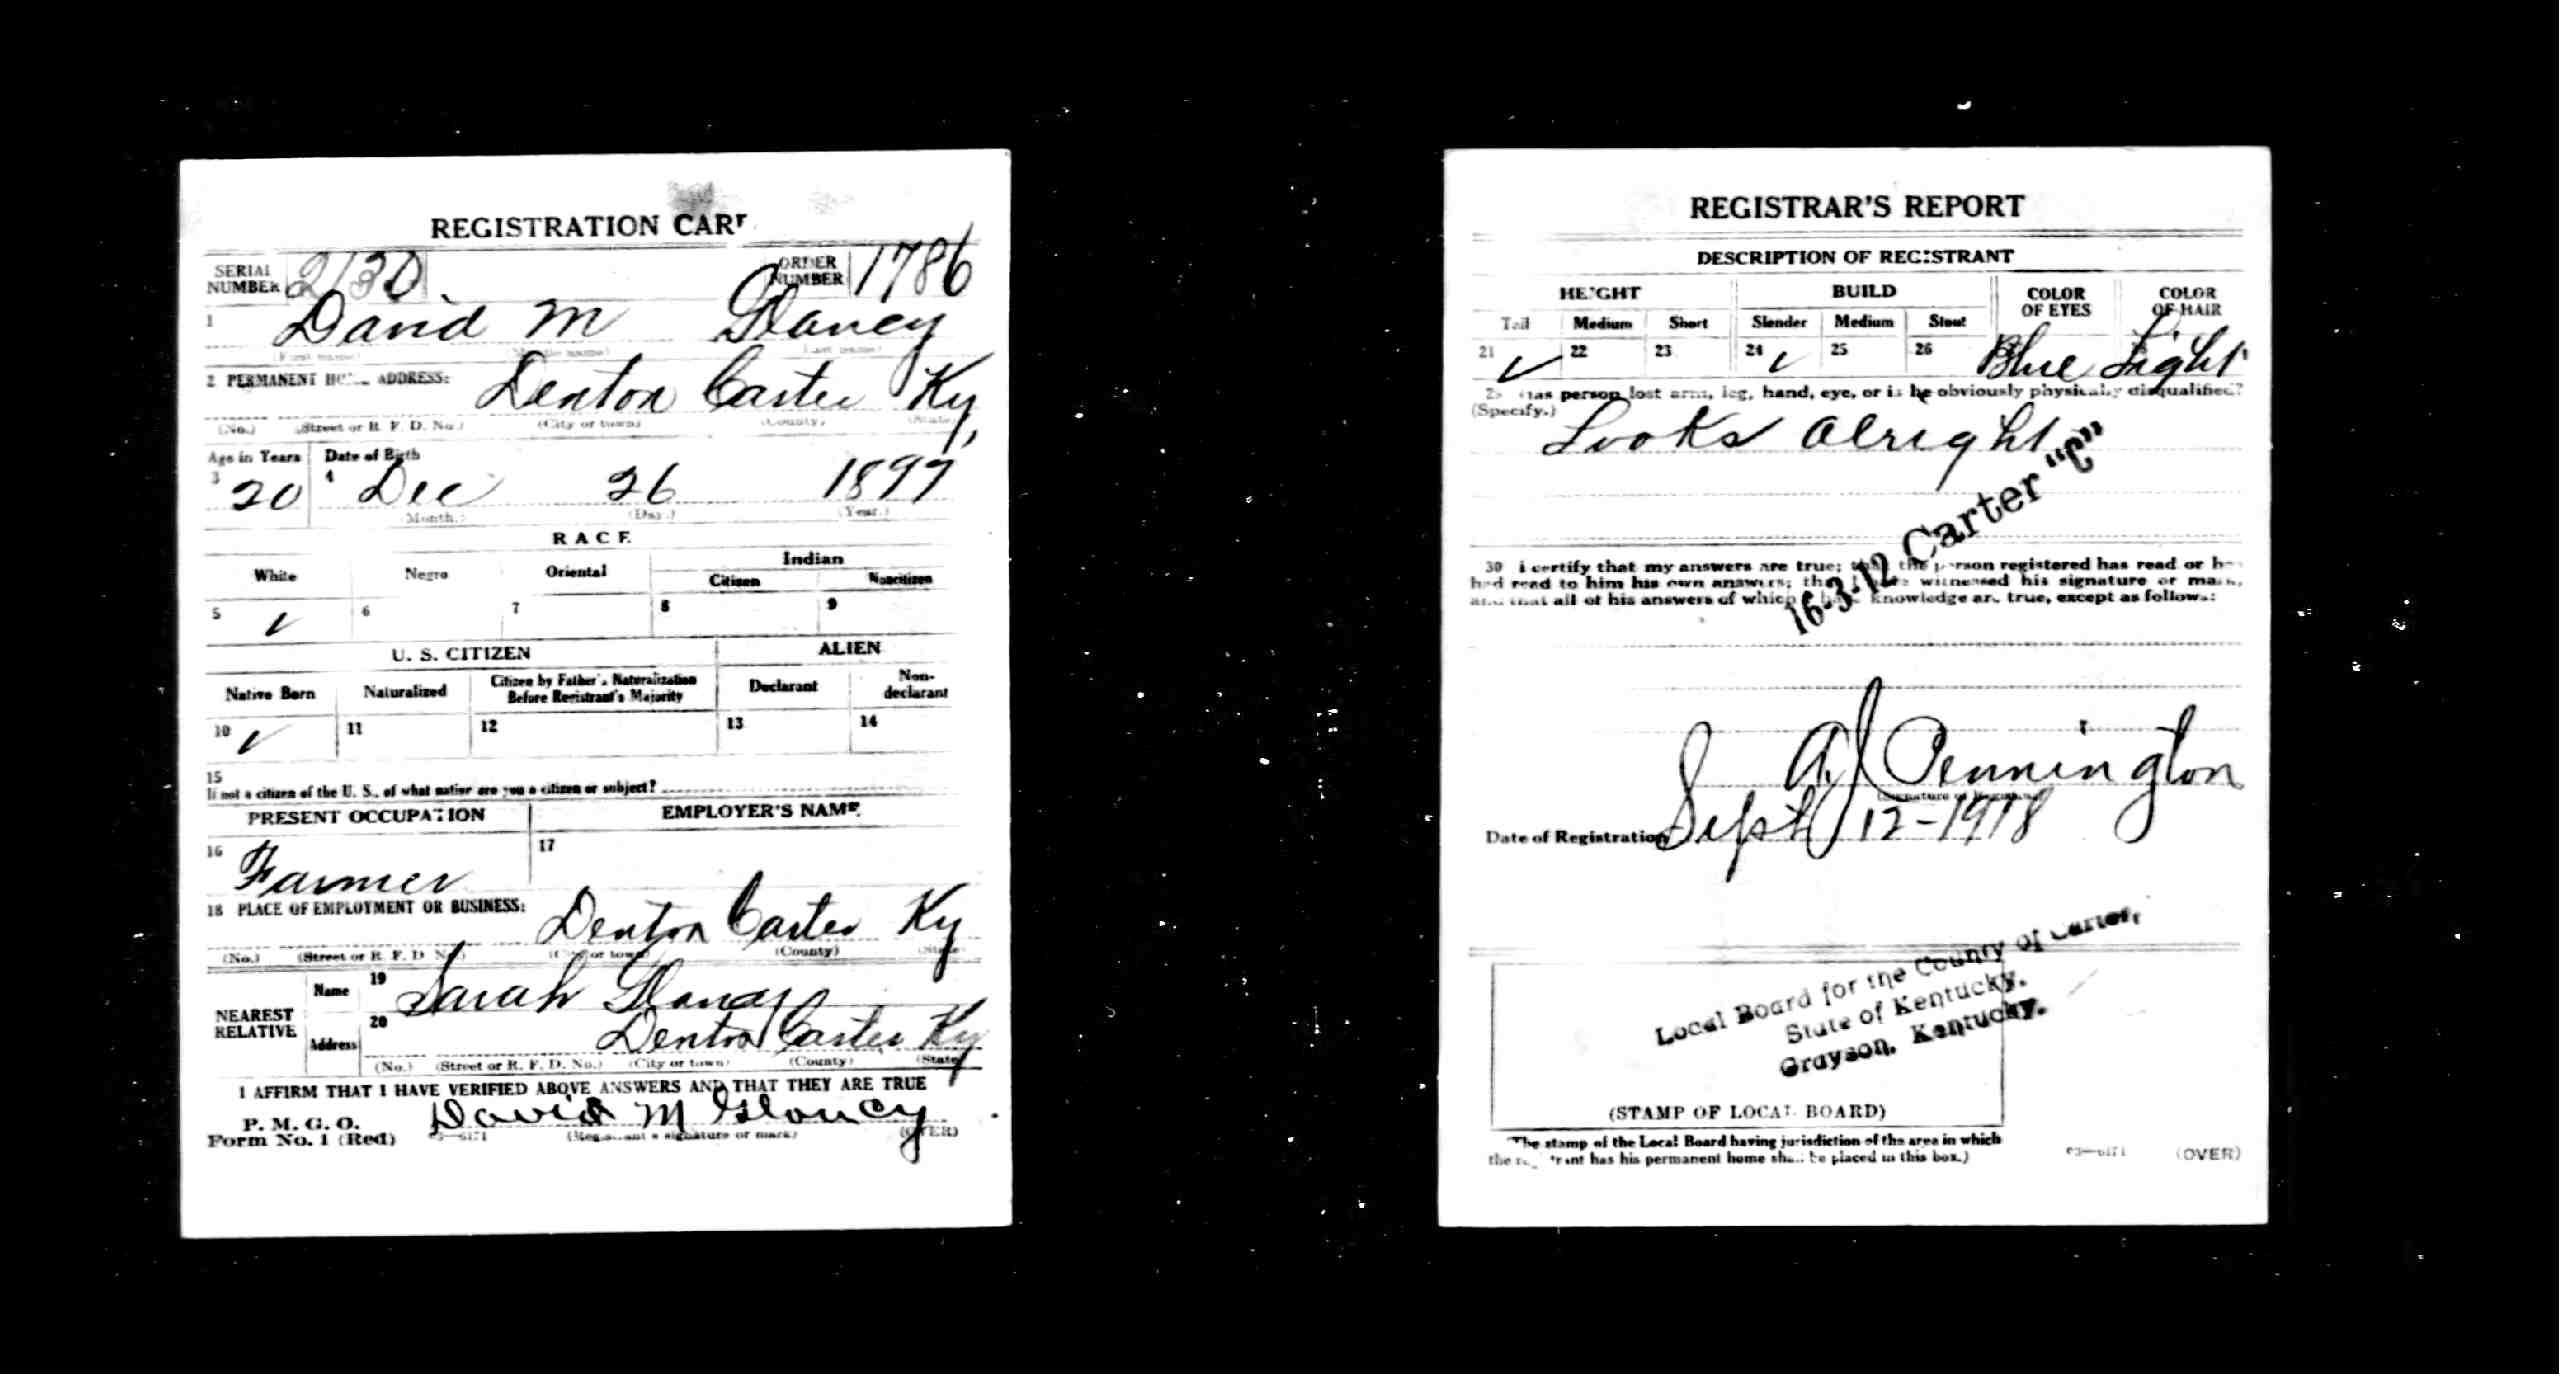 REGISTRATION CARD
SERIAL NUMBER 2130 ORDER NUMBER 1786
1 David M Glancy
(First name) (Middle name) (Last name)
2 PERMANENT HOME ADDRESS: Denton Carter Ky,
(No.) (Street or R. F. D. No.) (City or town) (County) (State)
Age in Years Date of Birth
3 20 4 Dec 26 1897
(Month.) (Day.) (Year.)
RACE
White Negro Oriental Indian
Citizen Noncitizen
5 ✓ 6 7 8 9
U. S. CITIZEN ALIEN
Native Born Naturalized Citizen by Father's Naturalization Before Registrant's Majority Declarant Non-declarant
10 ✓ 11 12 13 14
15
If not a citizen of the U. S., of what nation are you a citizen or subject?
PRESENT OCCUPATION EMPLOYER'S NAME
16 Farmer 17
18 PLACE OF EMPLOYMENT OR BUSINESS: Denton Carter Ky
(No.) (Street or R. F. D. No.) (City or town) (County) (State)
NEAREST RELATIVE Name 19 Sarah Glancy
Address 20 Denton Carter Ky
(No.) (Street or R. F. D. No.) (City or town) (County) (State)
I AFFIRM THAT I HAVE VERIFIED ABOVE ANSWERS AND THAT THEY ARE TRUE
P. M. G. O.
Form No. 1 (Red) 03—6171 David M Glancy
(Registrant's signature or mark) (OVER)
REGISTRAR'S REPORT
DESCRIPTION OF REGISTRANT
HEIGHT BUILD COLOR OF EYES COLOR OF HAIR
Tall Medium Short Slender Medium Stout
21 ✓ 22 23 24 ✓ 25 26 Blue Light
29 Has person lost arm, leg, hand, eye, or is he obviously physically disqualified?
(Specify.)
Looks Alright
16-3-12 Carter "C"
30 I certify that my answers are true; that the person registered has read or has
had read to him his own answers; that I have witnessed his signature or mark,
and that all of his answers of which I have knowledge are true, except as follows:
A J Pennington
(Signature of Registrar)
Date of Registration Sept 12-1918
Local Board for the County of Carter,
State of Kentucky.
Grayson, Kentucky.
(STAMP OF LOCAL BOARD)
(The stamp of the Local Board having jurisdiction of the area in which
the registrant has his permanent home shall be placed in this box.)
03—6171 (OVER)